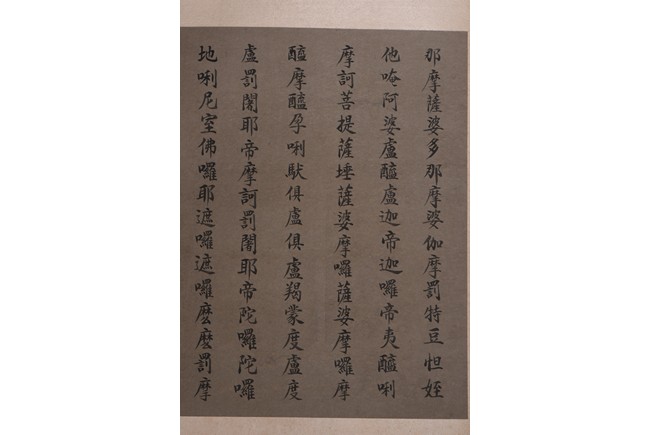 那摩薩婆多那摩婆伽摩罰特豆怛姪
他唵阿婆盧醯盧迦帝迦囉帝夷醯唎
摩訶菩提薩埵薩婆摩囉薩婆摩囉摩
醯摩醯孕唎馱俱盧俱盧羯蒙度盧度
盧罰闍耶帝摩訶罰闍耶帝陀囉陀囉
地唎尼室佛囉耶遮囉遮囉麼麼罰摩